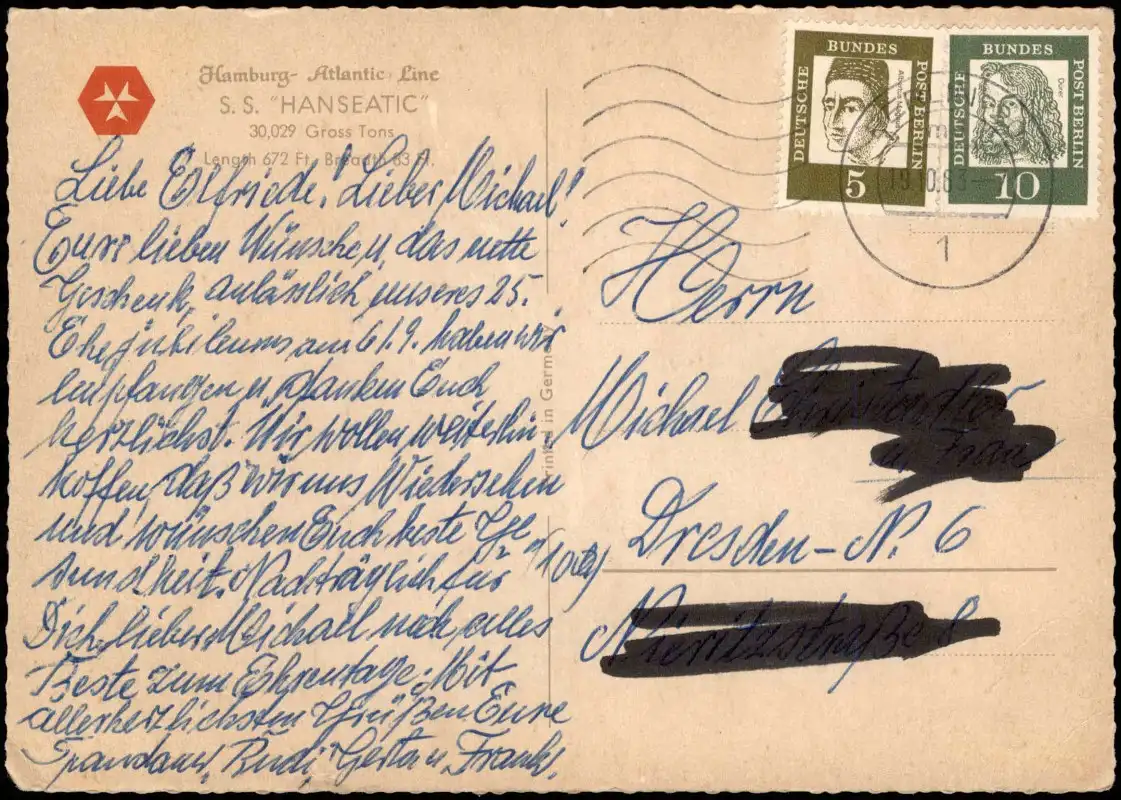 Hamburg- Atlantic Line
S. S. "HANSEATIC"
30,029 Gross Tons
Length 672 Ft. Breadth 83 Ft.
Liebe Elfriede! Lieber Michael!
Eure lieben Wünsche u. das nette
Geschenk, anlässlich unseres 25.
Ehejubiläums am 6/9. haben wir
empfangen u. danken Euch
herzlichst. Wir wollen weiterhin
hoffen, daß wir uns Wiedersehen
und wünschen Euch beste Ge
sundheit. Nachträglich für
Dich, lieber Michael noch, alles
Beste zum Ehrentage. Mit
allerherzlichsten Grüßen Eure
Spandauer, Rudi Gerta u. Frank.
Printed in Germany
DEUTSCHE
BUNDES
POST BERLIN
5
DEUTSCHE
BUNDES
POST BERLIN
Dürer
10
19.10.63
1
Herrn
Michael
u. Frau
Dresden-N. 6